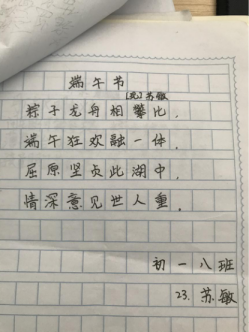 端午节
[元]苏敏
粽子龙舟相攀比,
端午狂欢融一体.
屈原坚贞此湖中,
情深意见世人重.
初一八班
23.苏敏